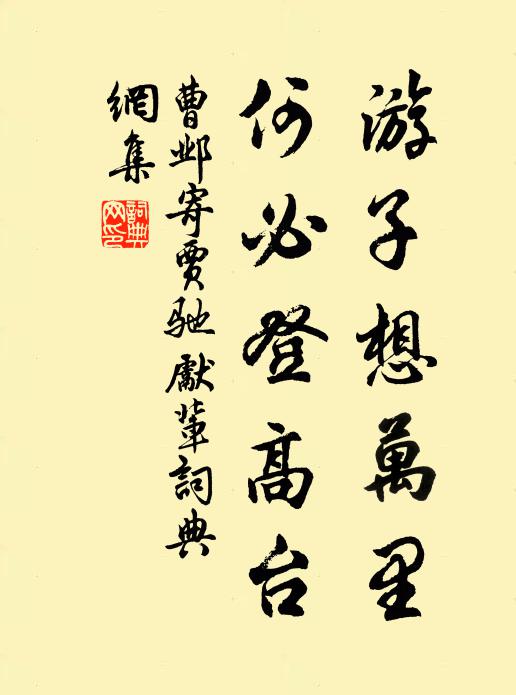 游子想萬里
何必登高台
曹邺寄賈馳 獻輩詞典
網集
詞典網印